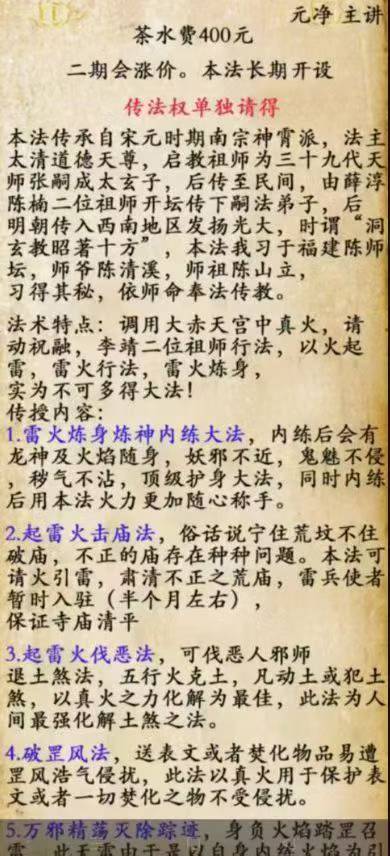 元净 主讲
茶水费400元
二期会涨价。本法长期开设
传法权单独请得
本法传承自宋元时期南宗神霄派，法主
太清道德天尊，启教祖师为三十九代天
师张嗣成太玄子，后传至民间，由薛淳
陈楠二位祖师开坛传下嗣法弟子，后
明朝传入西南地区发扬光大，时谓“洞
玄教昭著十方”，本法我习于福建陈师
坛，师爷陈清溪，师祖陈山立，
习得其秘，依师命奉法传教。
法术特点：调用大赤天宫中真火，请
动祝融，李靖二位祖师行法，以火起
雷，雷火行法，雷火炼身，
实为不可多得大法！
传授内容：
1.雷火炼身炼神内练大法，内练后会有
龙神及火焰随身，妖邪不近，鬼魅不侵
，秽气不沾，顶级护身大法，同时内练
后用本法火力更加随心称手。
2.起雷火击庙法，俗话说宁住荒坟不住
破庙，不正的庙存在种种问题。本法可
请火引雷，肃清不正之荒庙，雷兵使者
暂时入驻（半个月左右），
保证寺庙清平
3.起雷火伐恶法，可伐恶人邪师
退土煞法，五行火克土，凡动土或犯土
煞，以真火之力化解为最佳，此法为人
间最强化解土煞之法。
4.破罡风法，送表文或者焚化物品易遭
罡风浩气侵扰，此法以真火用于保护表
文或者一切焚化之物不受侵扰。
5.万邪精荡灭除踪迹，身负火焰踏罡召
雷，此天雷由于是以自身内练火焰为引